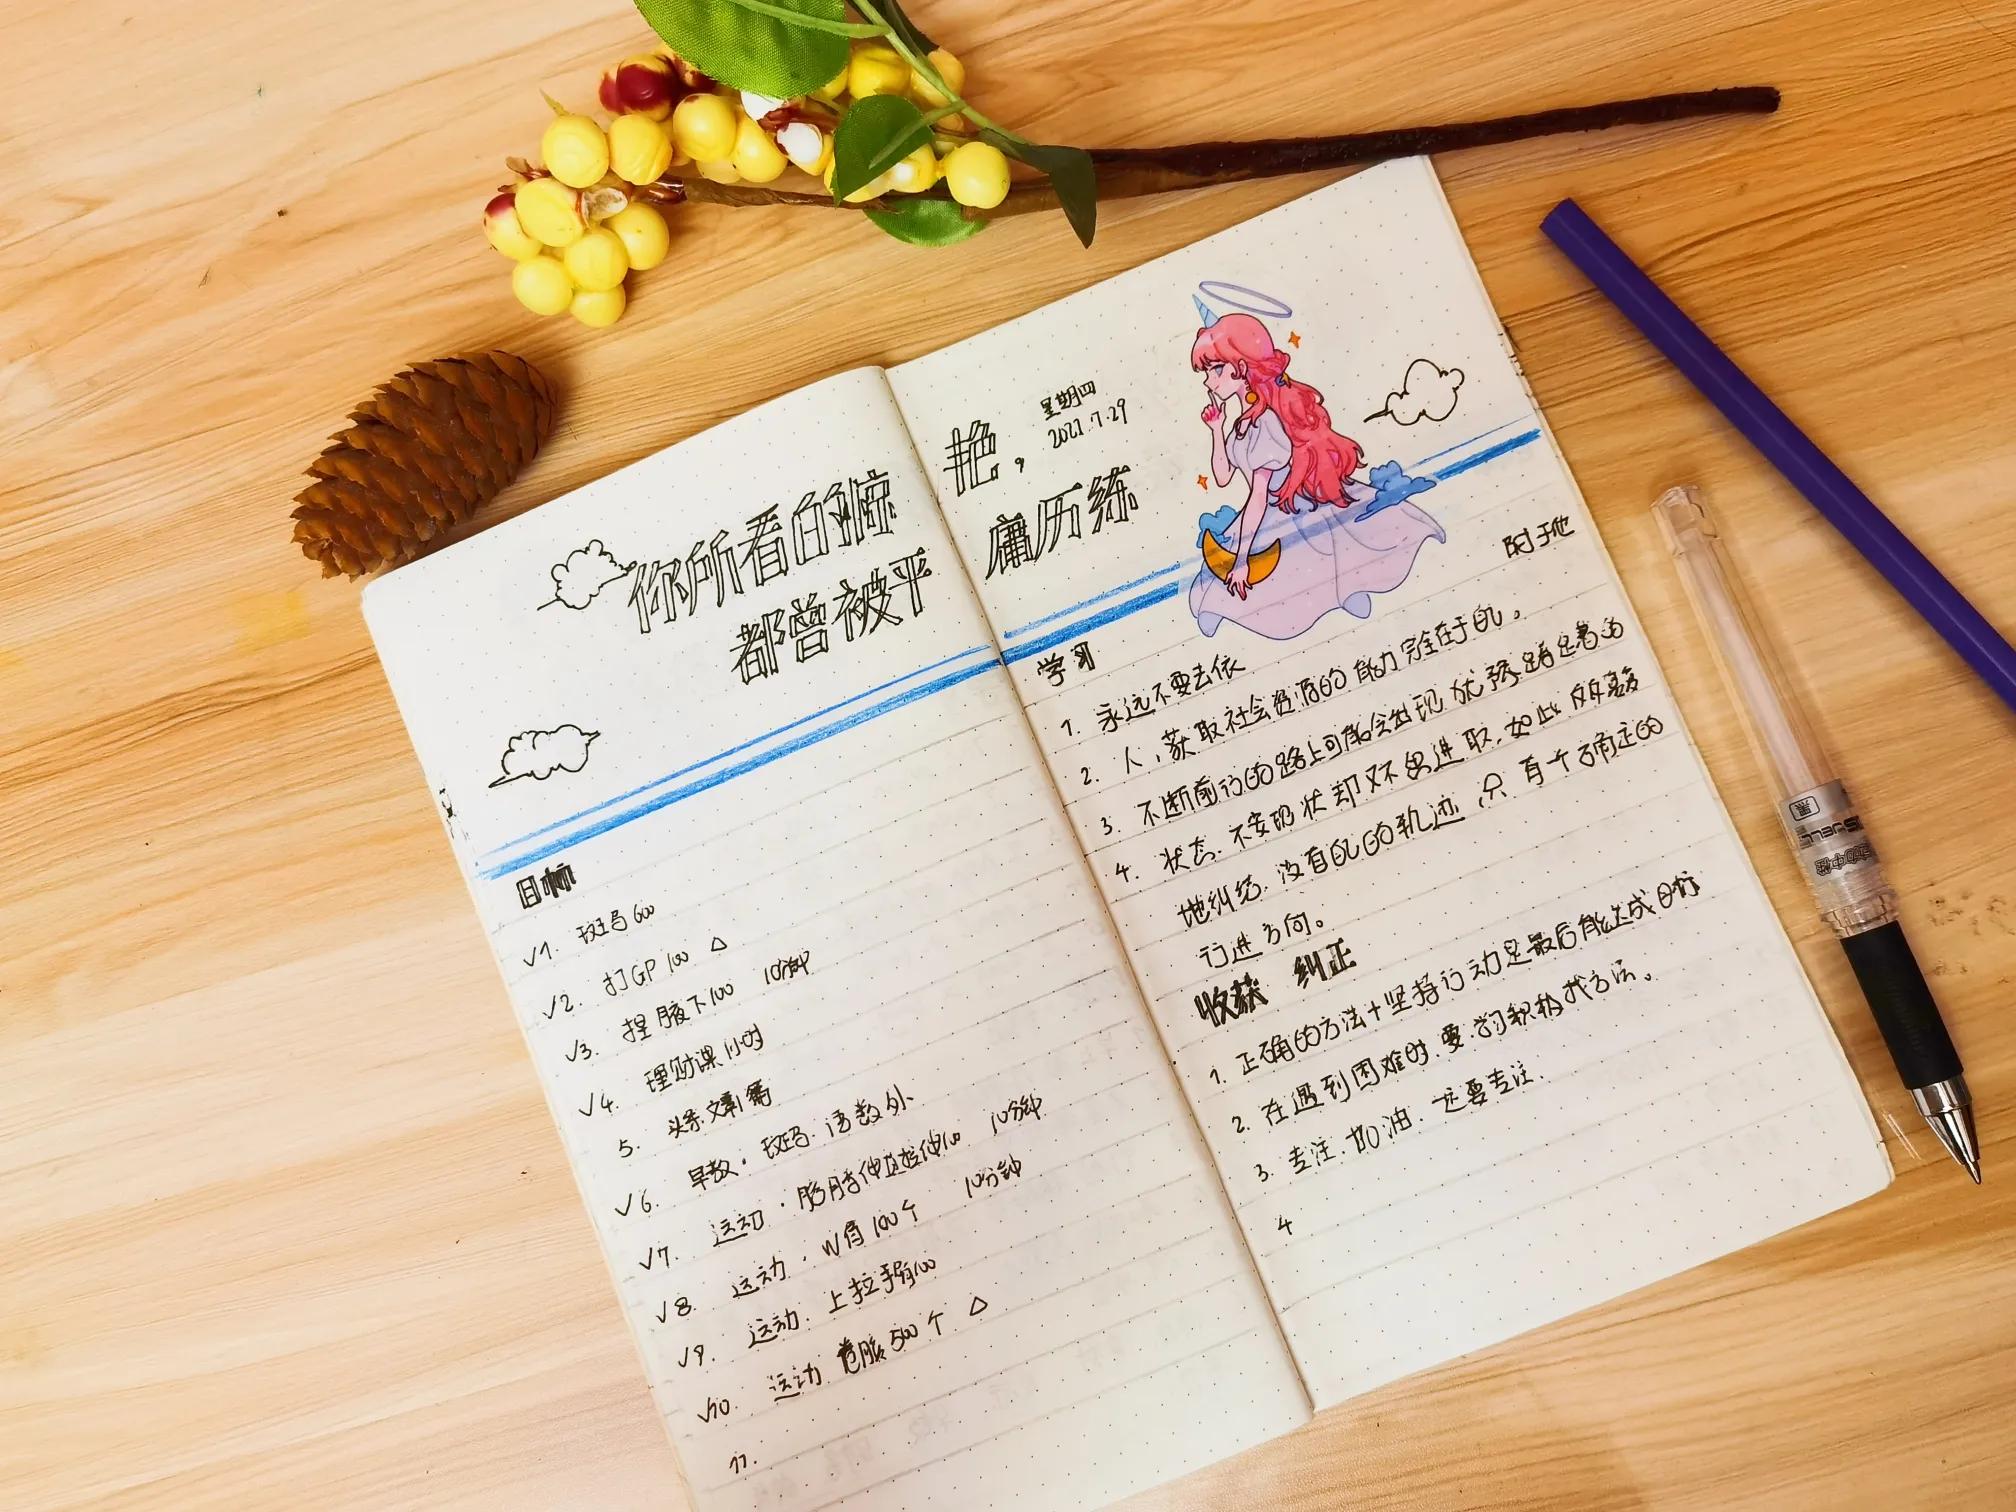 你所看的惊艳,
都曾被平庸历练
星期四
2021.7.29
目标
√1. 斑马600
√2. 打GP 100 △
√3. 捏腋下100 10分钟
√4. 理财课1小时
5. 头条文章1篇
√6. 早教. 斑马. 语数外
√7. 运动. 肱三头 拉伸100 10分钟
√8. 运动. W角100个 10分钟
√9. 运动. 上拉手臂100
√10. 运动 卷腹500个 △
11.
学习
1. 永远不要去依附于他
2. 人,获取社会资源的能力完全在于自己。
3. 不断前行的路上可能会出现优豫踌躇的
4. 状态. 不安现状却又不思进取. 如此反反复复
地纠结. 没有自己的轨迹. 只有个不确定的
行进方向。
收获 纠正
1. 正确的方法+坚持行动是最后能达成目标
2. 在遇到困难时. 要学习积极找方法。
3. 专注. 加油. 还要专注.
4